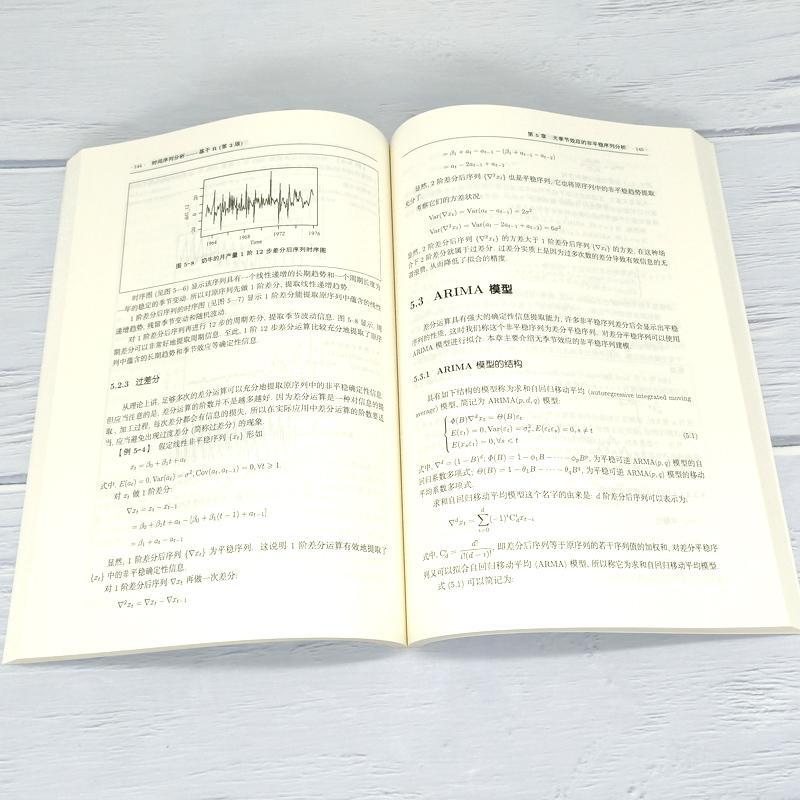 · 144 · 时间序列分析——基于 R (第 2 版)
1964 1968 1972 1976
Time
图 5-8 奶牛的月产量 1 阶 12 步差分后序列时序图
时序图 (见图 5—6) 显示该序列具有一个线性递增的长期趋势和一个周期长度为
一年的稳定的季节变动. 所以对原序列先做 1 阶差分, 提取线性递增趋势.
1 阶差分后序列的时序图 (见图 5—7) 显示 1 阶差分能提取原序列中蕴含的线性
递增趋势, 残留季节变动和随机波动.
对 1 阶差分后序列再进行 12 步的周期差分, 提取季节波动信息. 图 5-8 显示, 周
期差分可以非常好地提取周期信息. 至此, 1 阶 12 步差分运算比较充分地提取了原序
列中蕴含的长期趋势和季节效应等确定性信息.
5.2.3 过差分
从理论上讲, 足够多次的差分运算可以充分地提取原序列中的非平稳确定性信息.
但应当注意的是, 差分运算的阶数并不是越多越好. 因为差分运算是一种对信息的提
取、加工过程, 每次差分都会有信息的损失, 所以在实际应用中差分运算的阶数要适
当, 应当避免出现过度差分 (简称过差分) 的现象.
【例 5-4】 假定线性非平稳序列 {xₜ} 形如
xₜ = β₀ + β₁t + aₜ
式中, E(aₜ) = 0, Var(aₜ) = σ², Cov(aₜ, aₜ₋₁) = 0, ∀t ≥ 1.
对 xₜ 做 1 阶差分:
∇xₜ = xₜ − xₜ₋₁
= β₀ + β₁t + aₜ − [β₀ + β₁(t − 1) + aₜ₋₁]
= β₁ + aₜ − aₜ₋₁
显然, 1 阶差分后序列 {∇xₜ} 为平稳序列. 这说明 1 阶差分运算有效地提取了
{xₜ} 中的非平稳确定性信息.
对 1 阶差分后序列 ∇xₜ 再做一次差分:
∇²xₜ = ∇xₜ − ∇xₜ₋₁
第 5 章 无季节效应的非平稳序列分析 · 145 ·
= β₁ + aₜ − aₜ₋₁ − (β₁ + aₜ₋₁ − aₜ₋₂)
= aₜ − 2aₜ₋₁ + aₜ₋₂
显然, 2 阶差分后序列 {∇²xₜ} 也是平稳序列, 它也将原序列中的非平稳趋势提取
充分了.
考察它们的方差状况:
Var(∇xₜ) = Var(aₜ − aₜ₋₁) = 2σ²
Var(∇²xₜ) = Var(aₜ − 2aₜ₋₁ + aₜ₋₂) = 6σ²
显然, 2 阶差分后序列 {∇²xₜ} 的方差大于 1 阶差分后序列 {∇xₜ} 的方差, 在这种场
合下 2 阶差分就属于过差分. 过差分实质上是因为过多次数的差分导致有效信息的无
谓浪费, 从而降低了拟合的精度.
5.3 ARIMA 模型
差分运算具有强大的确定性信息提取能力, 许多非平稳序列差分后会显示出平稳
序列的性质, 这时我们称这个非平稳序列为差分平稳序列. 对差分平稳序列可以使用
ARIMA 模型进行拟合. 本章主要介绍无季节效应的非平稳序列建模.
5.3.1 ARIMA 模型的结构
具有如下结构的模型称为求和自回归移动平均 (autoregressive integrated moving
average) 模型, 简记为 ARIMA(p, d, q) 模型:
Φ(B)∇ᵈxₜ = Θ(B)εₜ
E(εₜ) = 0, Var(εₜ) = σ²_ε, E(εₜεₛ) = 0, s ≠ t
E(xₛεₜ) = 0, ∀s < t
(5.1)
式中, ∇ᵈ = (1 − B)ᵈ; Φ(B) = 1 − φ₁B − ··· − φₚBᵖ, 为平稳可逆 ARMA(p, q) 模型的自
回归系数多项式; Θ(B) = 1 − θ₁B − ··· − θ_qB^q, 为平稳可逆 ARMA(p, q) 模型的移动
平均系数多项式.
求和自回归移动平均模型这个名字的由来是: d 阶差分后序列可以表示为:
∇ᵈxₜ = ∑_{i=0}^{d} (−1)ⁱ C_d^i xₜ₋ᵢ
式中, C_d^i = d!/(i!(d − i)!), 即差分后序列等于原序列的若干序列值的加权和, 对差分平稳序
列又可以拟合自回归移动平均 (ARMA) 模型, 所以称它为求和自回归移动平均模型.
式 (5.1) 可以简记为: